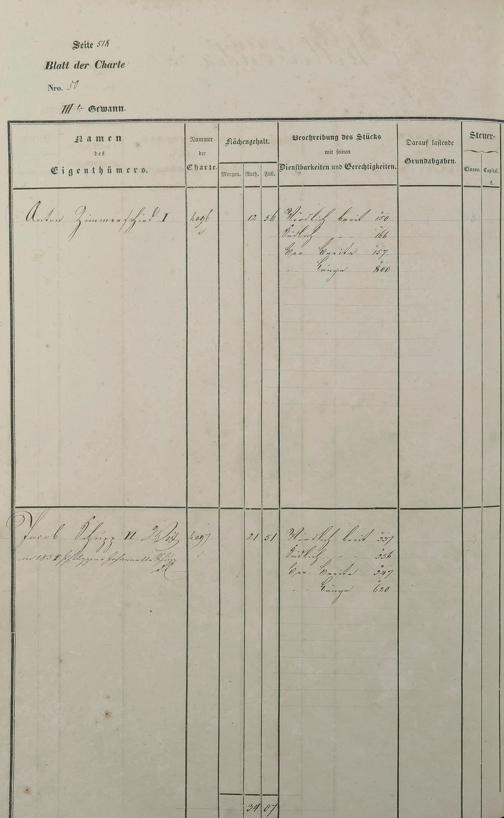 Seite 518
Blatt der Charte
Nro. 50
IIIte Gewann.
Namen des Eigenthümers.
Nummer der Charte.
Flächengehalt.
Morgen. Ruth. Fuß.
Beschreibung des Stücks mit seinen Dienstbarkeiten und Gerechtigkeiten.
Darauf lastende Grundabgaben.
Steuer-
Classe. Capital.
Anton Zimmerschied I 4096 12 56 Nördlich breit 150
Südlich " 166
Cor. Breite 157
" Länge 800
Jacob Schupp II 4097 21 51 Nördlich breit 337
Südlich " 356
Cor. Breite 347
" Länge 620
34 07